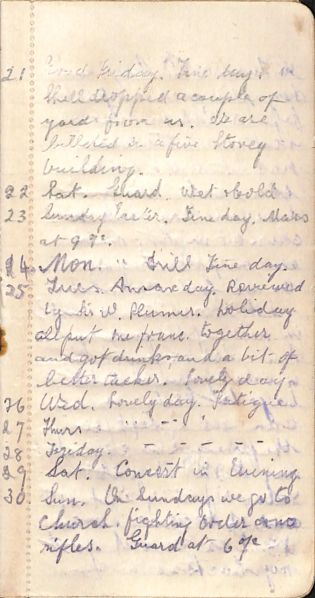 21 Good Friday. Fine day. A
Shell dropped a couple of
yards from us. We are
billeted in a five Storey
building.
22 Sat. Guard. Wet & Cold
23 Sunday Easter. Fine day. Mass
at 9
24. Mon. " Drill Fine day.
25 Tues. Anzac day. Reviewed
by Sir W. Plumer. Holiday
all put one franc together
and got drinks and a bit of
better tacker. Lovely day
26 Wed. Lovely day. Fatigue
27 Thurs. - - -
28 Friday. - - - - -
29 Sat. Concert in Evening
30 Sun. On Sundays we go to
Church. fighting order and
rifles. Guard at 6